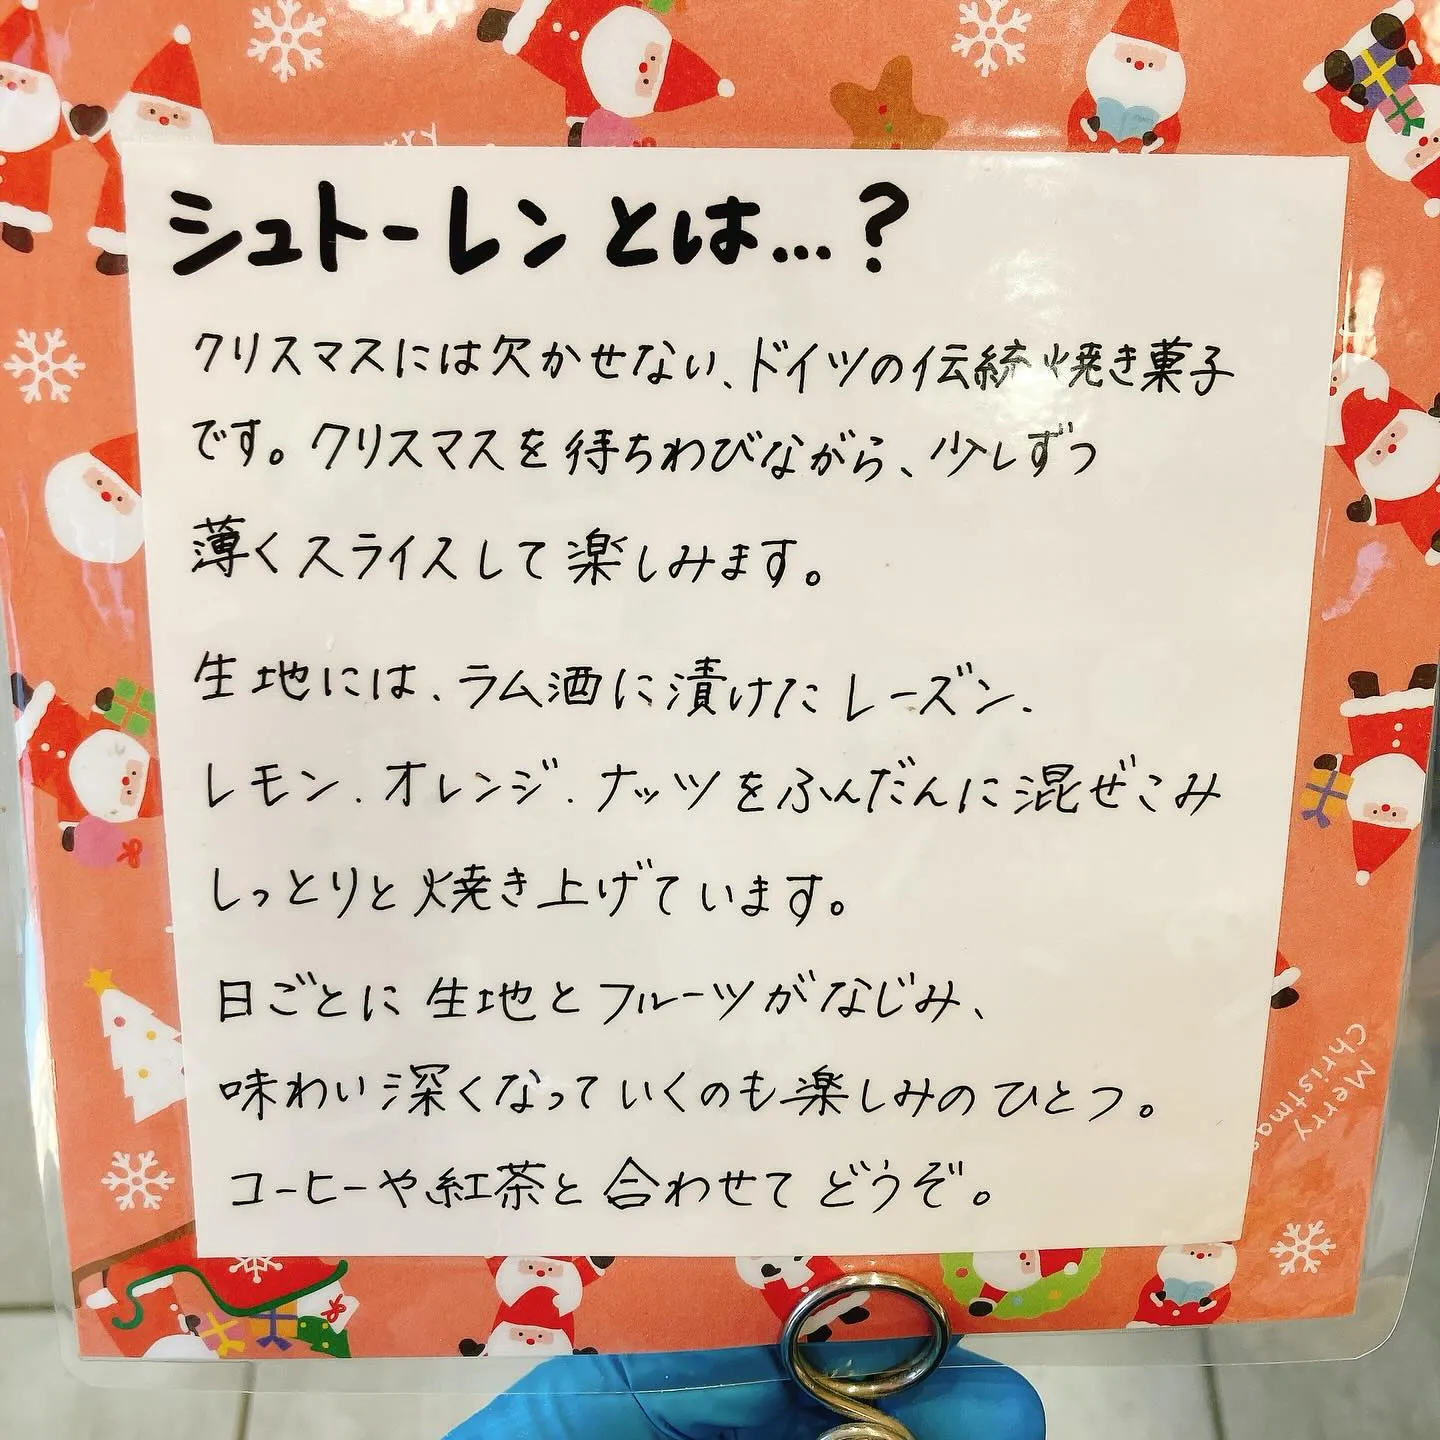 シュトーレンとは…？
クリスマスには欠かせない、ドイツの伝統焼き菓子
です。クリスマスを待ちわびながら、少しずつ
薄くスライスして楽しみます。
生地には、ラム酒に漬けたレーズン、
レモン、オレンジ、ナッツをふんだんに混ぜこみ
しっとりと焼き上げています。
日ごとに生地とフルーツがなじみ、
味わい深くなっていくのも楽しみのひとつ。
コーヒーや紅茶と合わせてどうぞ。
Merry
Christmas